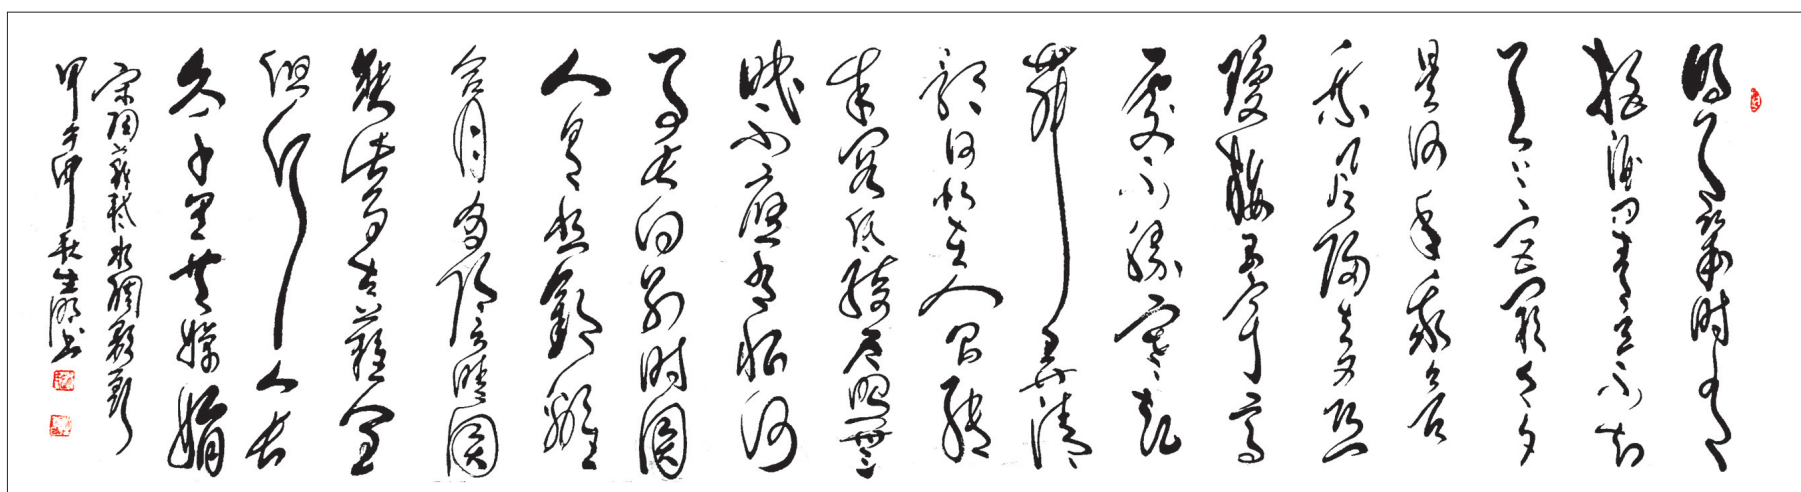 明月幾时有
把酒問青天不知
天上宮闕今夕
是何年我欲
乘風歸去又恐
瓊樓玉宇高
處不勝寒起
舞弄清
影何似在人間轉
朱閣低綺户照無
眠不應有恨何
事長向别时圓
人有悲歡離
合月有陰晴圓
缺此事古難全
但願人長
久千里共嬋娟
宋詞蘇軾水調歌頭
甲午仲秋